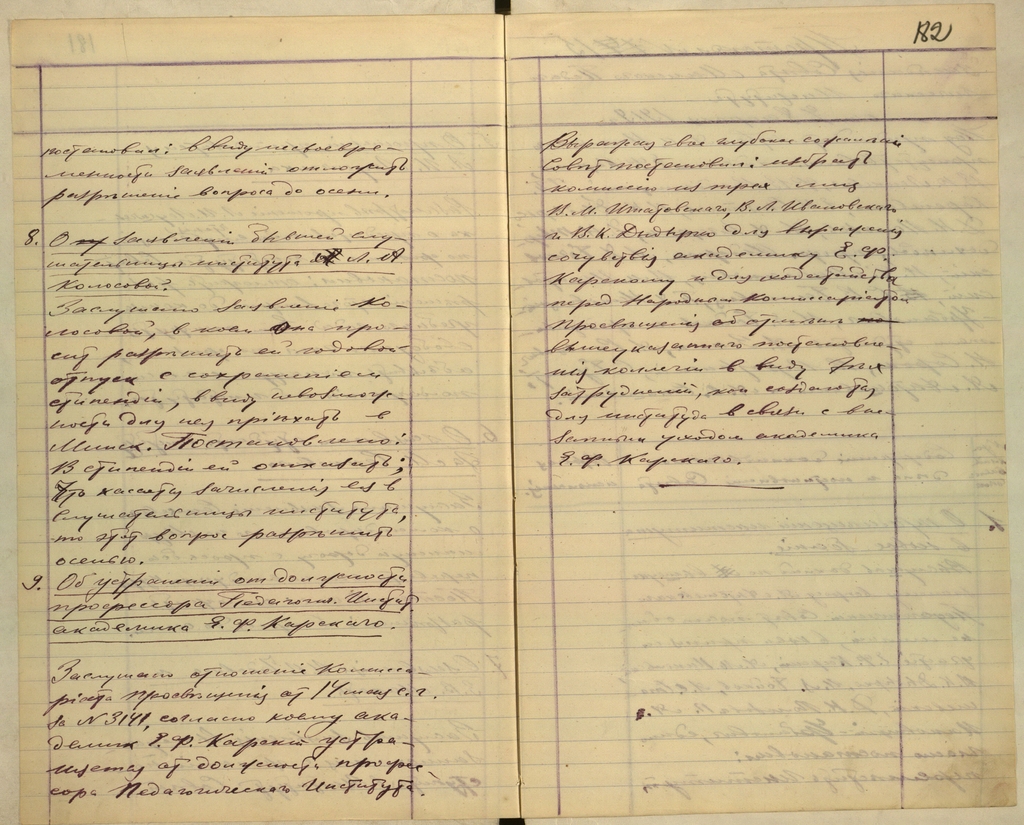 182
постановил: в виду несвоевре-
менности заявленій отложить
разрешеніе вопроса до осени.
8. О заявленіи бывшей слу-
шательницы института Л. А.
Колосовой.
Заслушано заявленіе Ко-
лосовой, в коем она про-
сит разрешить ей годовой
отпуск с сохраненіем
стипендіи, в виду невозмож-
ности для нея пріехать в
Минск. Постановлено:
В стипендіи ей отказать;
что касается зачисленія ея в
слушательницы института,
то этот вопрос разрешить
осенью.
9. Об устраненіи от должности
профессора Педагогич. Инстит.
академика Е. Ф. Карскаго.
Заслушано отношеніе Комисса-
ріата Просвещенія от 14 мая с. г.
за N 3141, согласно коему ака-
демик Е. Ф. Карскій устра-
няется от должности профес-
сора Педагогическаго Института.
Выражая свое глубокое сожаленіе
Совет постановил: избрать
комиссію из трех лиц
В. М. Игнатовскаго, В. Л. Ивановскаго
и В. К. Дыдырко для выраженія
сочувствія академику Е. Ф.
Карскому и для ходатайства
перед Народным Комиссаріатом
Просвещенія об отмене
вышеуказаннаго постановле-
нія коллегіи в виду тех
затрудненій, кои создаются
для института в связи с вне-
запным уходом академика
Е. Ф. Карскаго.